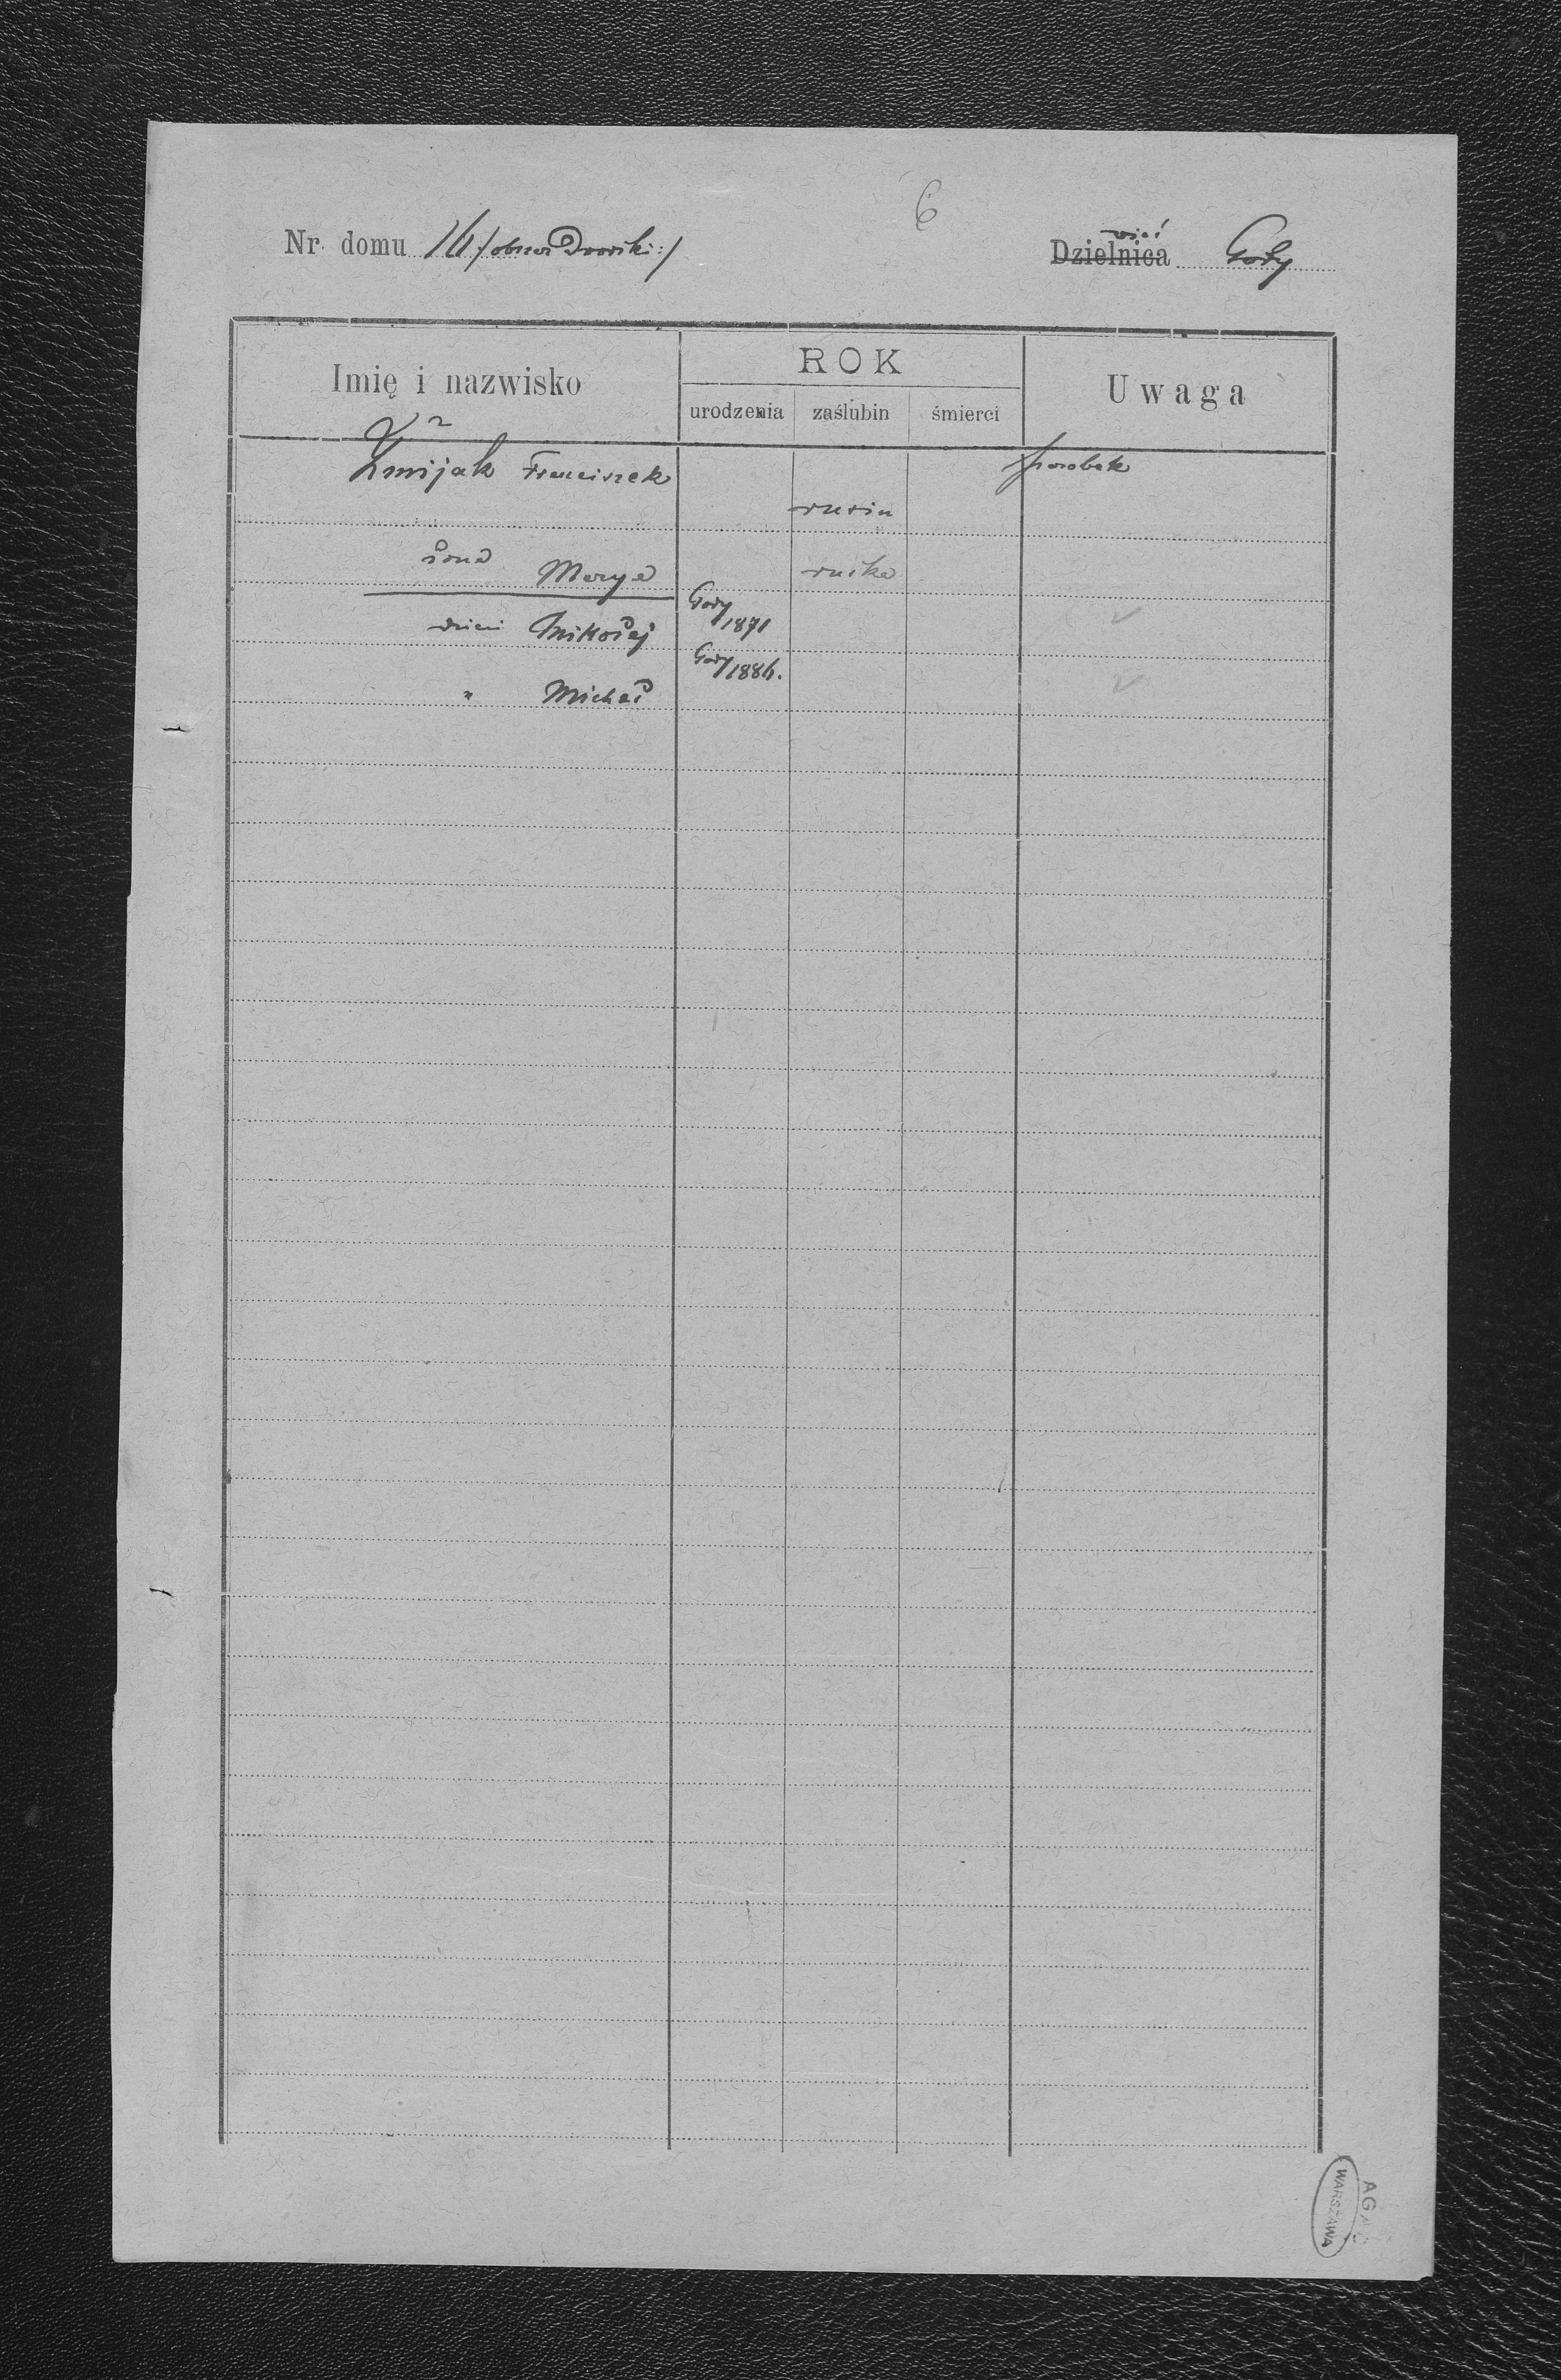 6
Nr. domu 14 /: obszar Dworski :/
wieś
Dzielnica Goży
Imię i nazwisko
ROK
urodzenia zaślubin śmierci
Uwaga
Żmijak Franciszek parobek
rusin
żona Marya ruska
dzieci Mikołaj Gody 1871
" Michał Gody 1884.
AGAD
WARSZAWA